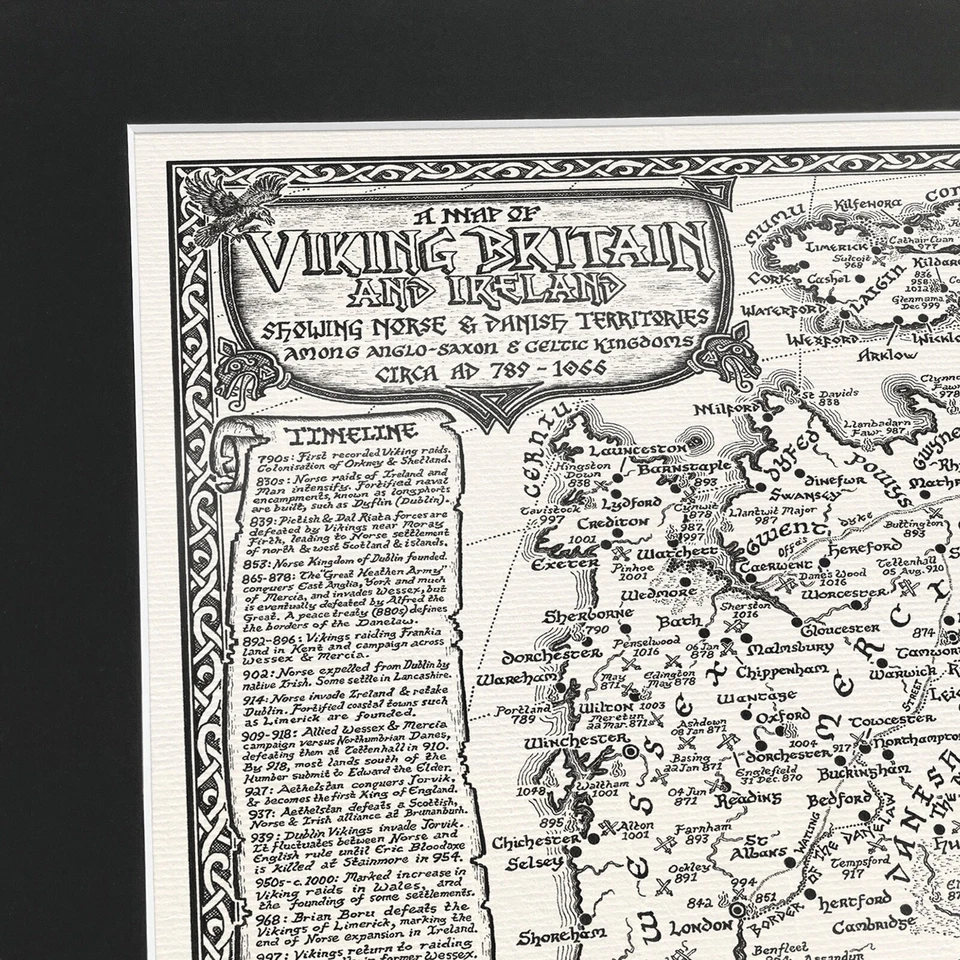 A MAP OF
VIKING BRITAIN
AND IRELAND
SHOWING NORSE & DANISH TERRITORIES
AMONG ANGLO-SAXON & CELTIC KINGDOMS
CIRCA AD 789 - 1066
TIMELINE
790s: First recorded Viking raids.
Colonisation of Orkney & Shetland.
830s: Norse raids of Ireland and
Man intensify. Fortified naval
encampments, known as longphorts
are built, such as Dyflin (Dublin).
839: Pictish & Dal Riata forces are
defeated by Vikings near Moray
Firth, leading to Norse settlement
of north & west Scotland & islands.
853: Norse Kingdom of Dublin founded.
865-878: The "Great Heathen Army"
conquers East Anglia, York and much
of Mercia, and invades Wessex, but
is eventually defeated by Alfred the
Great. A peace treaty (880s) defines
the borders of the Danelaw.
892-896: Vikings raiding Frankia
land in Kent and campaign across
Wessex & Mercia.
902: Norse expelled from Dublin by
native Irish. Some settle in Lancashire.
914: Norse invade Ireland & retake
Dublin. Fortified coastal towns such
as Limerick are founded.
909-918: Allied Wessex & Mercia
campaign versus Northumbrian Danes,
defeating them at Tettenhall in 910.
By 918, most lands south of the
Humber submit to Edward the Elder.
927: Aethelstan conquers Jorvik,
& becomes the first King of England.
937: Aethelstan defeats a Scottish,
Norse & Irish alliance at Brunanburh.
939: Dublin Vikings invade Jorvik.
It fluctuates between Norse and
English rule until Eric Bloodaxe
is killed at Stainmore in 954.
950s-c.1000: Marked increase in
Viking raids in Wales, and
the founding of some settlements.
968: Brian Boru defeats the
Vikings of Limerick, marking the
end of Norse expansion in Ireland.
997: Vikings return to raiding
in former Wessex.
MUMU
Kilfenora
CON
Limerick
Cathair Cuan
977
Sulcoit
968
Kildare
836
958
1013
CORK
Cashel
LAIGIN
Glenmama
Dec 999
WATERFORD
Wexford
Wicklo
Arklow
CERNIU
Milford
St Davids
838
Clynno
Fawr
978
Llanbadarn
Fawr 987
GWYNE
Launceston
Hingston
Down
838
Barnstaple
893
DYFED
Dinefwr
POWYS
Rh
Mathr
Tavistock
997
Lydford
Cynwit
878
987
997
Swansey
Llantwit Major
987
Crediton
GWENT
Offa's
Dyke
Buttington
893
1001
Exeter
Watchett
Hereford
Pinhoe
1001
Caerwent
Danes Wood
1016
Tettenhall
05 Aug. 910
Wedmore
Worcester
Sherston
1016
Sherborne
790
Bath
Gloucester
874
Penselwood
1016
06 Jan
878
Malmsbury
Tamwort
Dorchester
Chippenham
Warwick
Wareham
May
871
Edington
May 878
Wantage
STREET
Leic
Portland
789
Wilton
1003
Meretun
22 Mar. 871
Ashdown
08 Jan 871
Oxford
Towcester
1004
917
Northampton
Winchester
Basing
22 Jan 871
Dorchester
Englefield
31 Dec. 870
Buckingham
1048
Waltham
1001
04 Jun
871
Reading
Bedford
WESSEX
MERCIA
DANISH
895
Alton
1001
Farnham
893
WATLING
Chichester
St
Albans
BORDER OF THE DANELAW
Selsey
Ockley
891
Tempsford
917
994
842
851
Hertford
Shoreham
London
Cambridge
Benfleet
Assandun